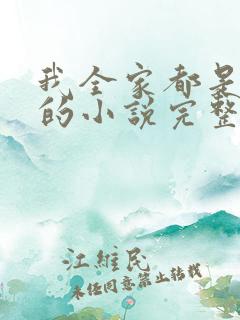 我全家都是
的小说完整
江维民
未经同意禁止转载